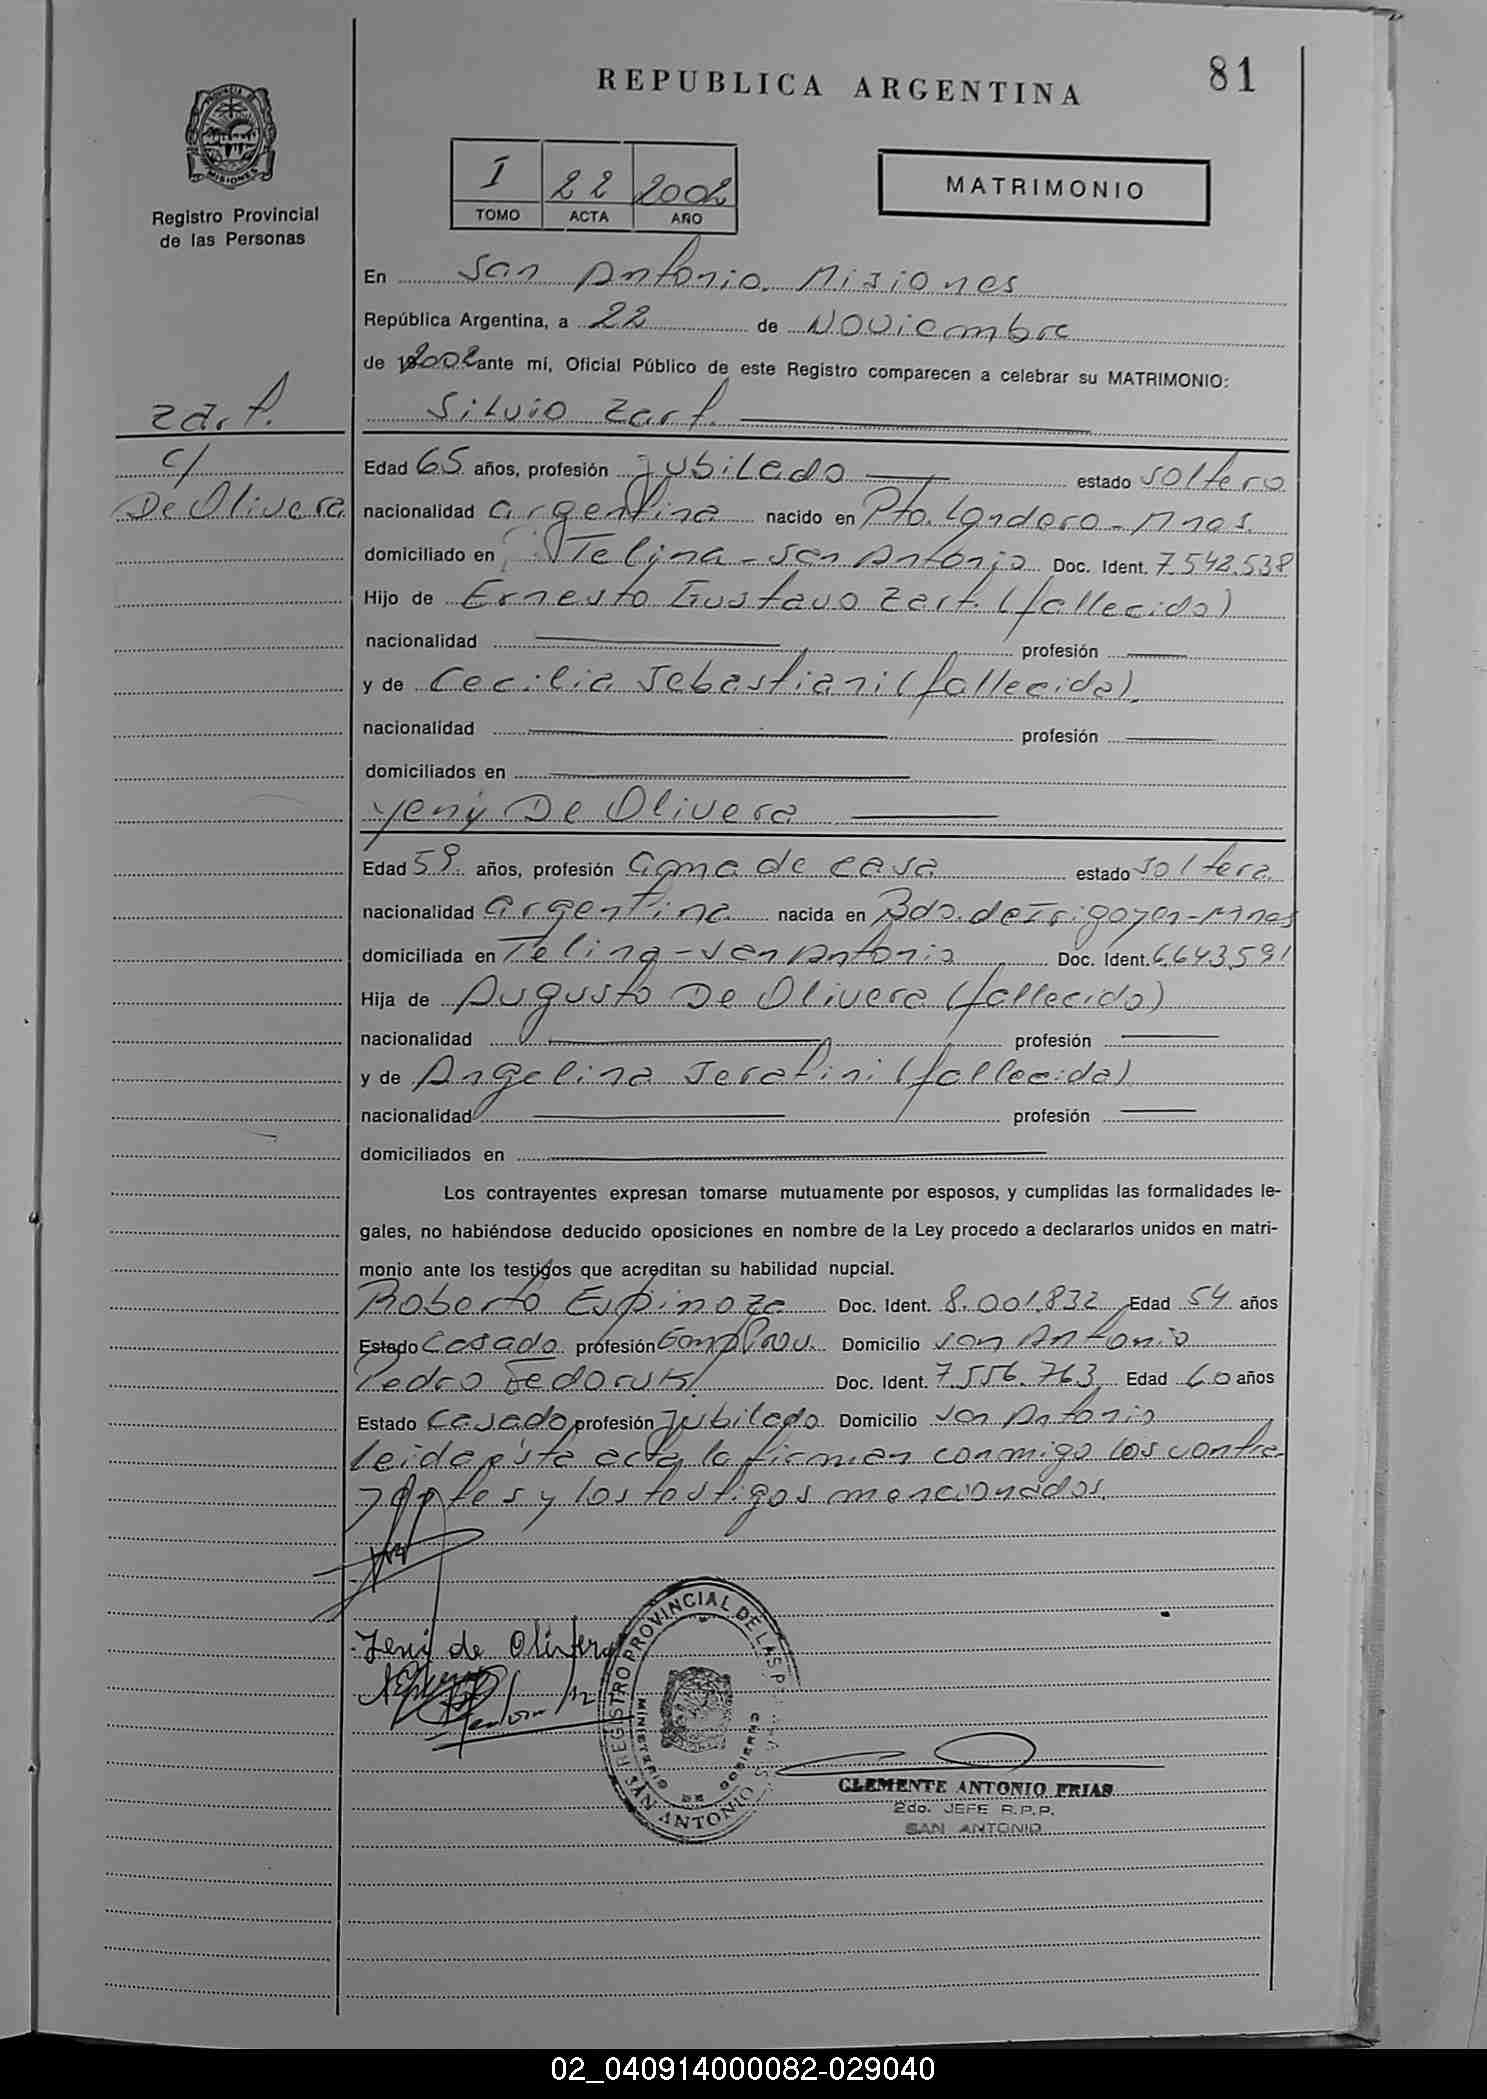 81
REPUBLICA ARGENTINA
PROVINCIA DE
MISIONES
Registro Provincial
de las Personas
I 22 2002
TOMO ACTA AÑO
MATRIMONIO
En San Antonio. Misiones
República Argentina, a 22 de Noviembre
de 2002 ante mí, Oficial Público de este Registro comparecen a celebrar su MATRIMONIO:
Zart.
c/
De Olivera
Silvio Zart.
Edad 65 años, profesión Jubilado estado soltero
nacionalidad argentina nacido en Pto. Londero - Mnes.
domiciliado en Telina - San Antonio Doc. Ident. 7.542.538
Hijo de Ernesto Gustavo Zart. (fallecido)
nacionalidad profesión
y de Cecilia Sebastiani (fallecida)
nacionalidad profesión
domiciliados en
Yeny De Olivera
Edad 59 años, profesión ama de casa estado soltera
nacionalidad argentina nacida en Bdo. de Irigoyen - Mnes
domiciliada en Telina - San Antonio Doc. Ident. 6.643.591
Hija de Augusto De Olivera (fallecido)
nacionalidad profesión
y de Angelina Serafini (fallecida)
nacionalidad profesión
domiciliados en
Los contrayentes expresan tomarse mutuamente por esposos, y cumplidas las formalidades le-
gales, no habiéndose deducido oposiciones en nombre de la Ley procedo a declararlos unidos en matri-
monio ante los testigos que acreditan su habilidad nupcial.
Roberto Espinoza Doc. Ident. 8.001.832 Edad 54 años
Estado Casado profesión Emp. Prov. Domicilio San Antonio
Pedro Fedoruk Doc. Ident. 7.556.763 Edad 60 años
Estado Casado profesión Jubilado Domicilio San Antonio
leida ésta acta la firman conmigo los contra-
yentes y los testigos mencionados.
Jeni de Olivera
REGISTRO PROVINCIAL DE LAS P
MINISTERIO DE GOBIERNO
SAN ANTONIO
CLEMENTE ANTONIO FRIAS
2do. JEFE R.P.P.
SAN ANTONIO
02_040914000082-029040